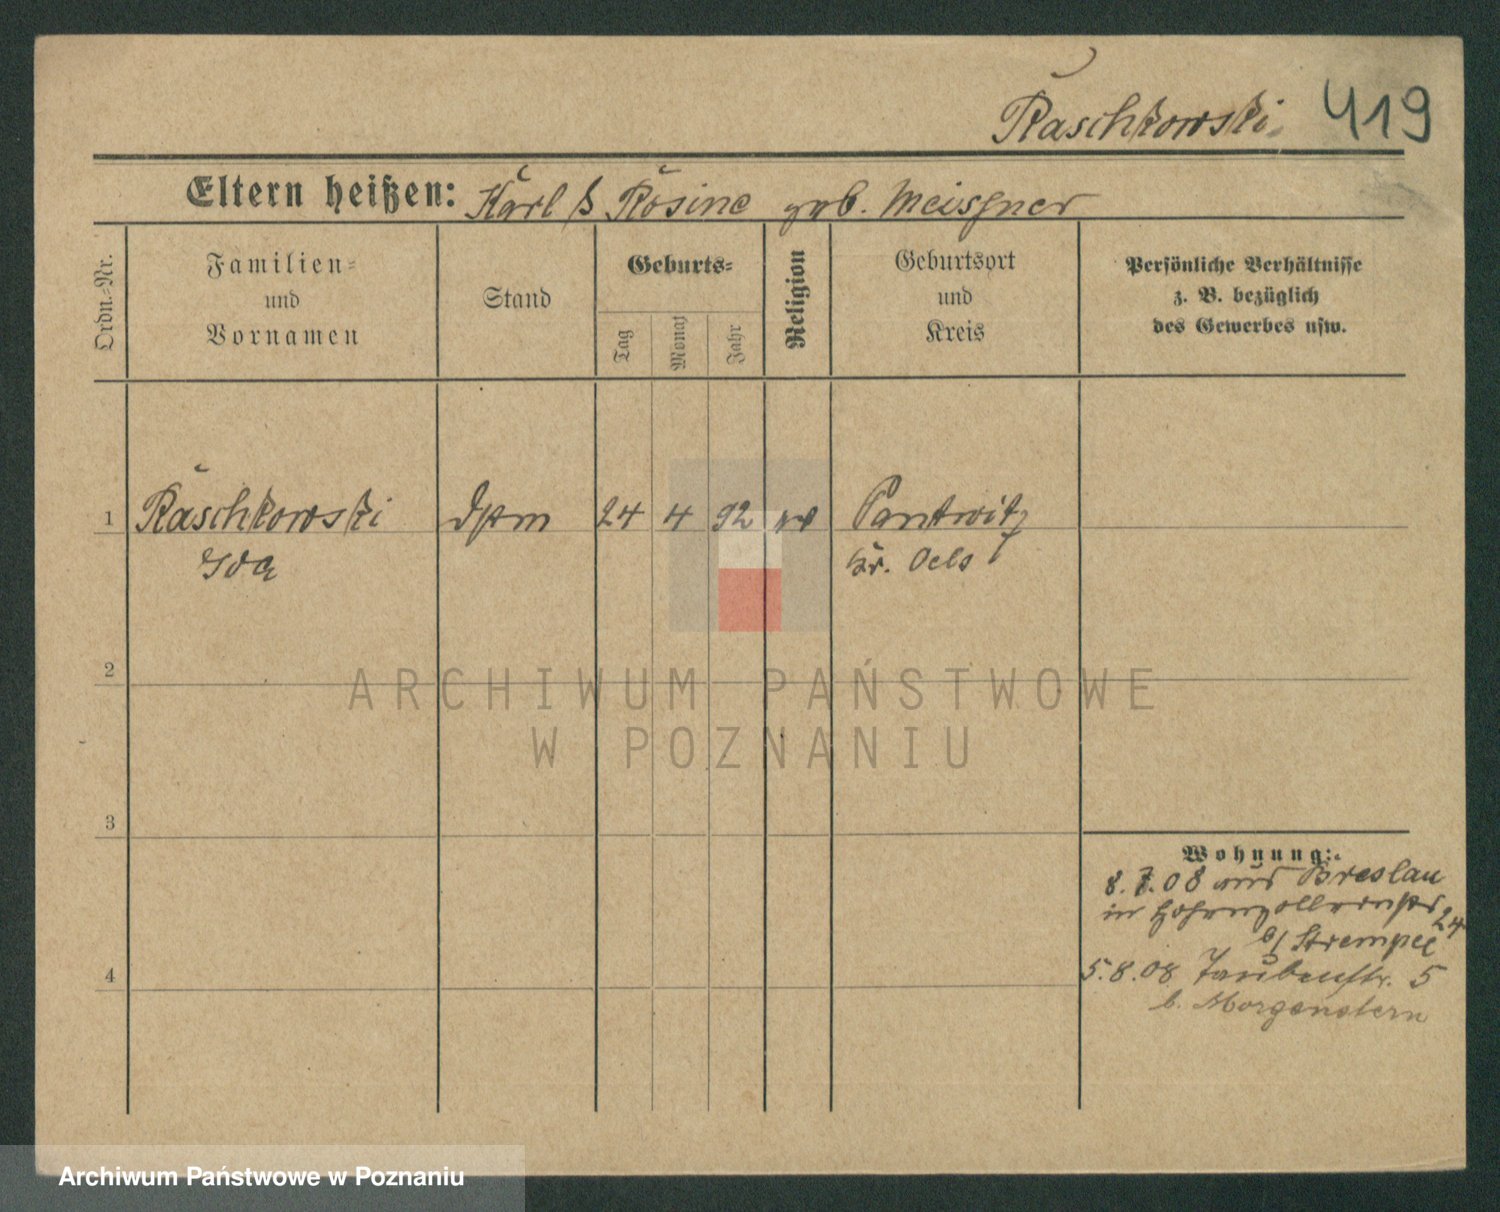 Raschkowski 419
Eltern heißen: Karl & Rosine geb. Meissner
Ordn.=Nr.
Familien=
und
Vornamen
Stand
Geburts=
Tag
Monat
Jahr
Religion
Geburtsort
und
Kreis
Persönliche Verhältnisse
z. B. bezüglich
des Gewerbes usw.
1 Raschkowski 24 4 92 Pantwitz
Ida Kr. Oels
2
3
4
Wohnung:
8.7.08 aus Breslau
in Hohenzollernstr 24
b/ Strempel
5.8.08 Taubenstr. 5
b. Morgenstern
ARCHIWUM PAŃSTWOWE
W POZNANIU
Archiwum Państwowe w Poznaniu